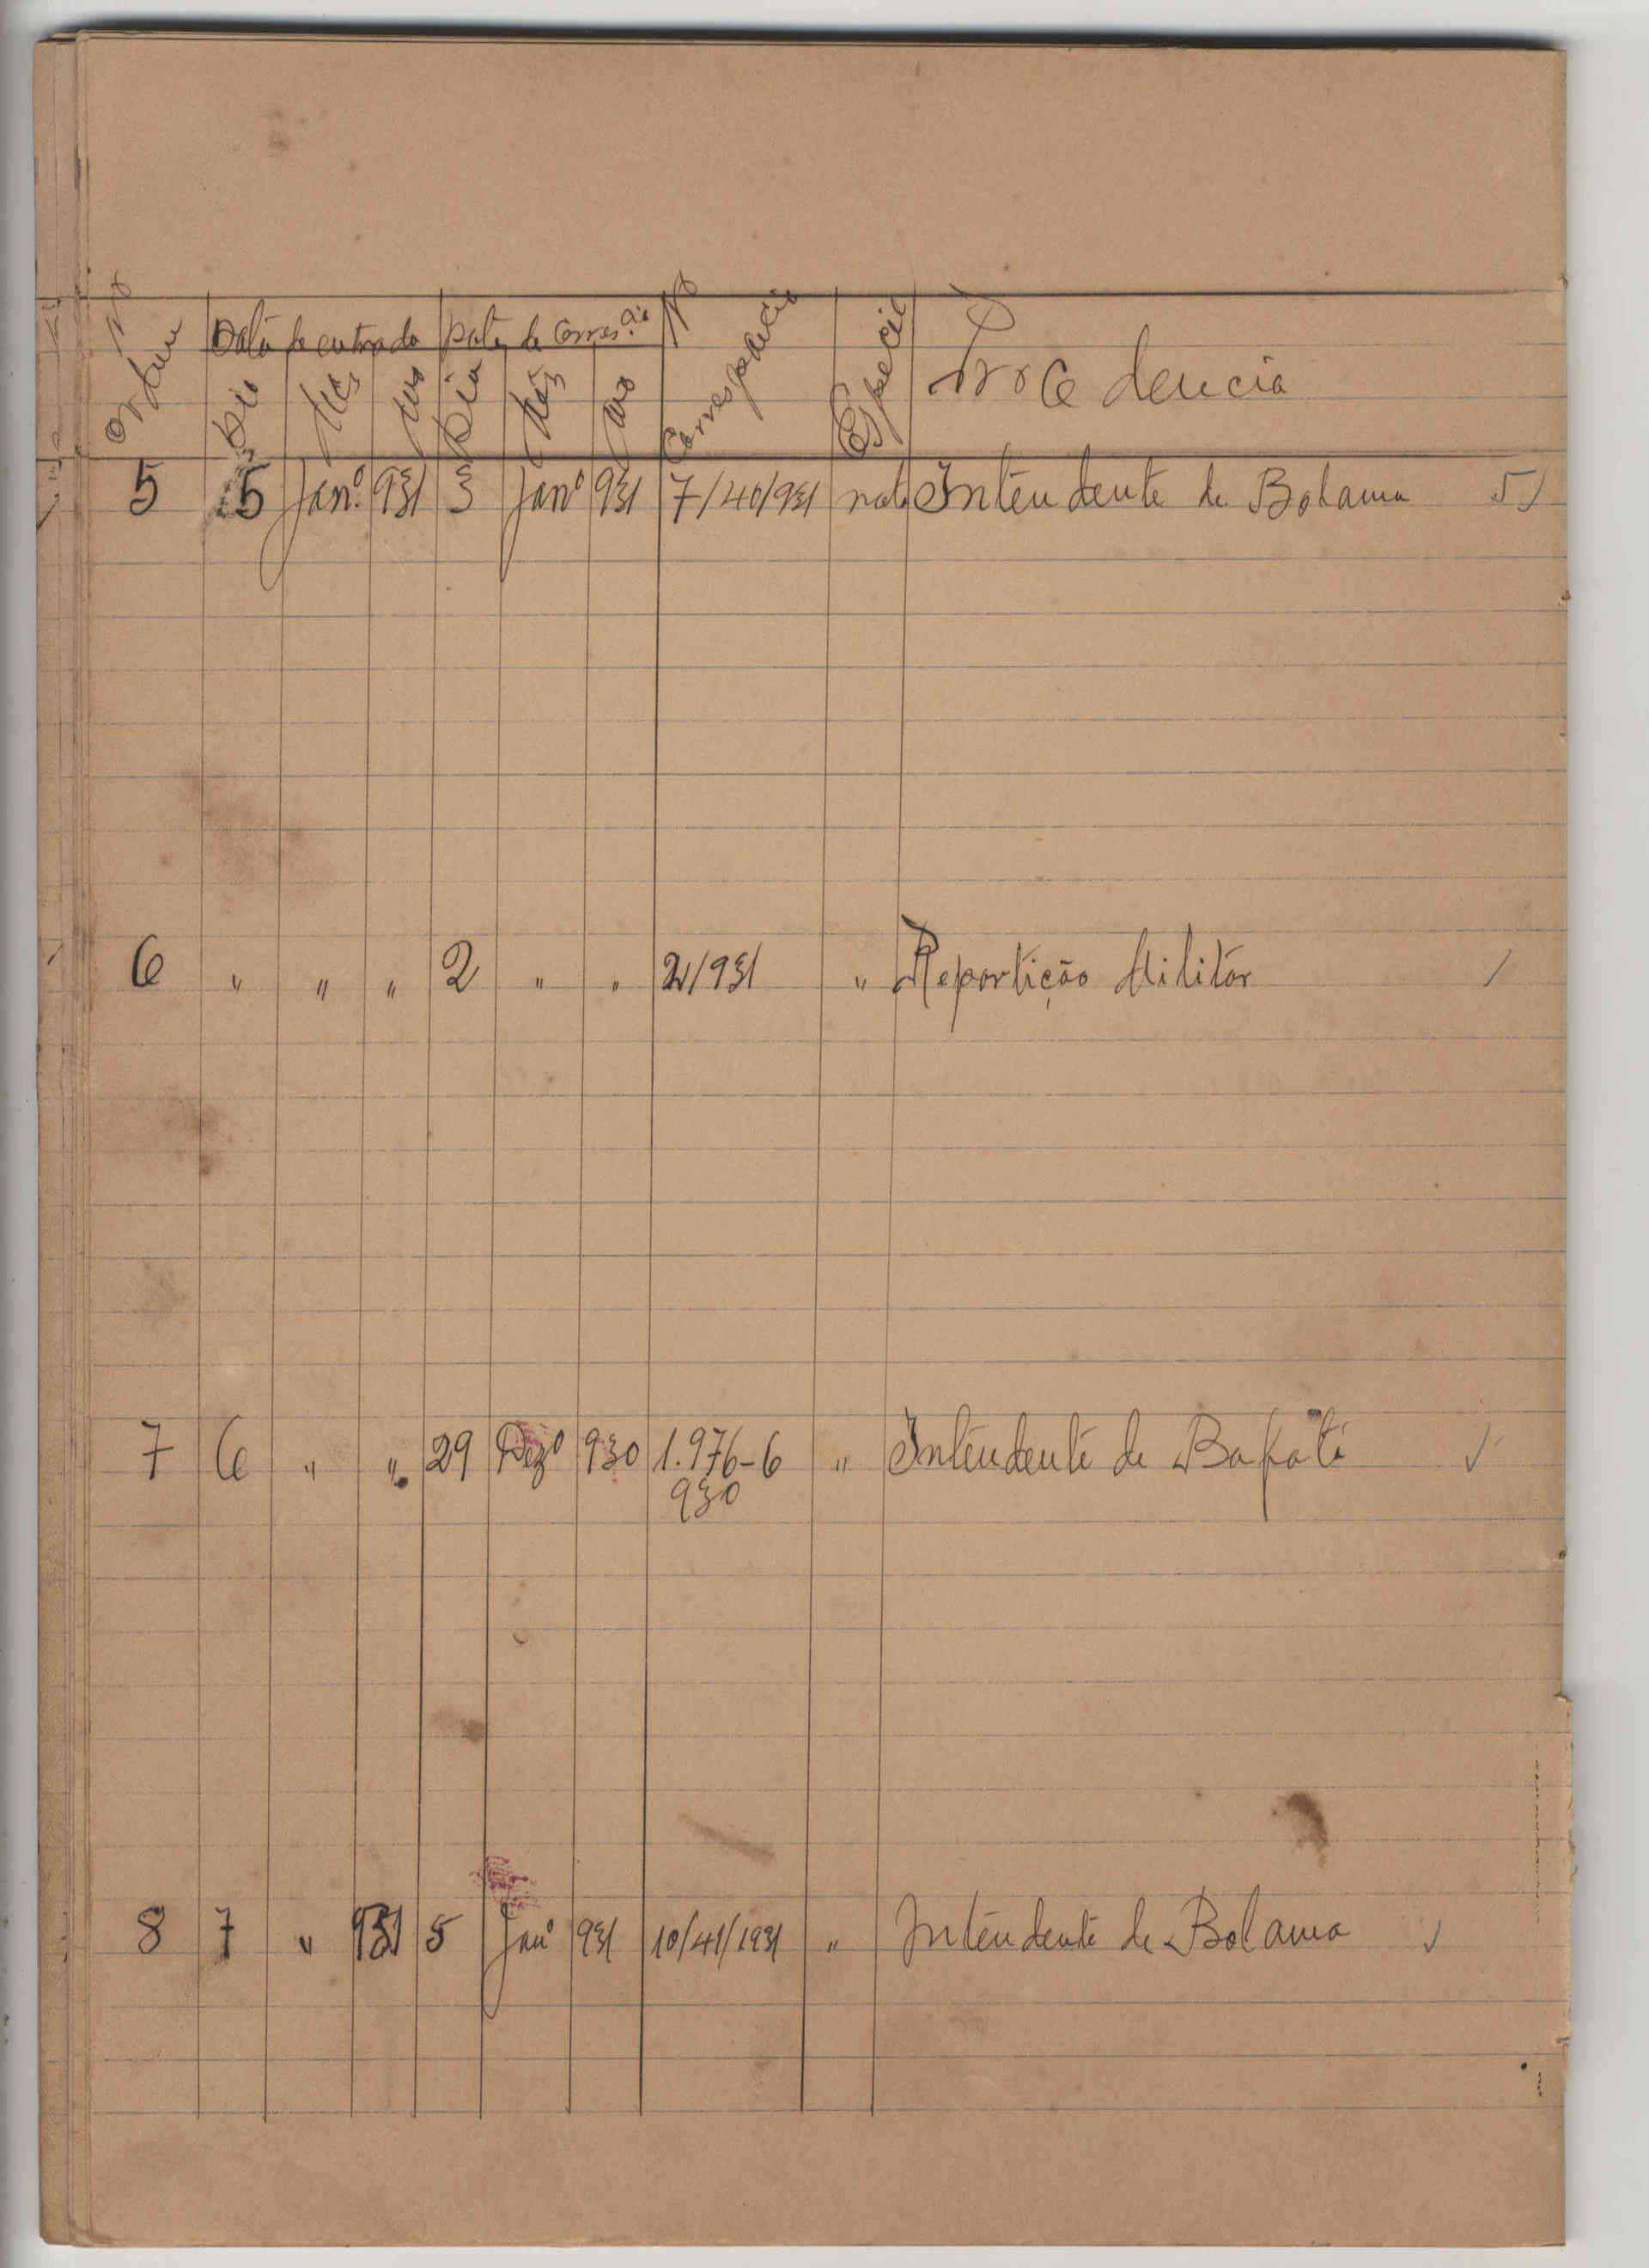 Nº Ordem Data de entrada Data de Corres.cia Nº Correspodecia Especie Procedencia
Dia Mês Ano Dia Mês Ano
5 5 Janº. 931 3 Janº 931 7/40/931 nota Intendente de Bolama 5 /
6 " " " 2 " " 21/931 " Repartição Militar /
7 6 " " 29 Dezº 930 1.976-6 " Intendente de Bafatá
930
8 7 " 931 5 Janº 931 10/41/1931 " Intendente de Bolama